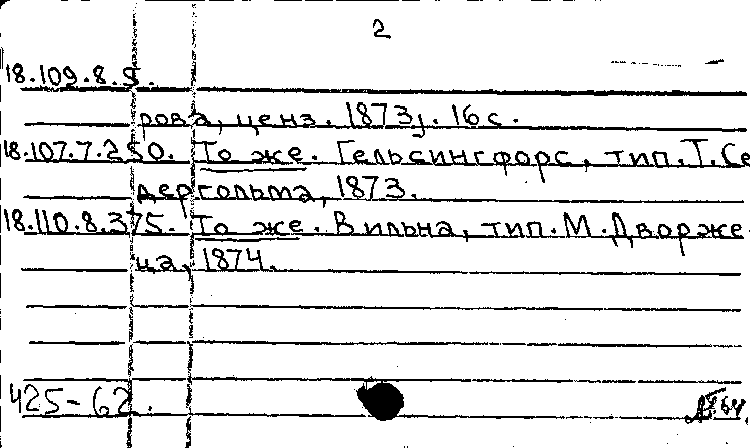 2
18.109.8.5.
рова, ценз. 1873]. 16 с.
18.107.7.250. То же. Гельсингфорс, тип. Т. Се
дергольма, 1873.
18.110.8.375. То же. Вильна, тип. М. Дворже
ца, 1874.
425-62.